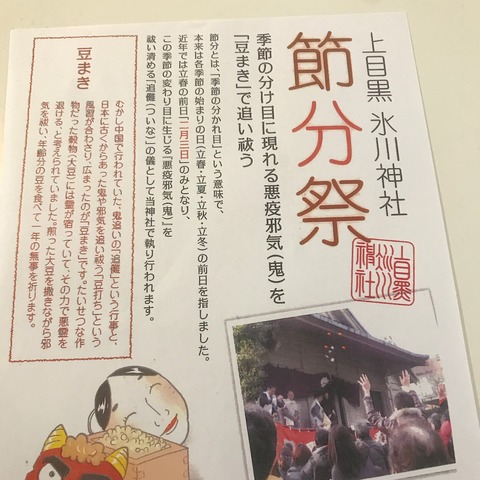 上目黒 氷川神社
節分祭
上目黒
氷川
神社
季節の分け目に現れる悪疫邪気(鬼)を
「豆まき」で追い祓う
節分とは、「季節の分かれ目」という意味で、
本来は各季節の始まりの日(立春・立夏・立秋・立冬)の前日を指しました。
近年では立春の前日「二月三日」のみとなり、
この季節の変わり目に生じる「悪疫邪気(鬼)」を
祓い清める「追儺(ついな)」の儀として当神社で執り行われます。
豆まき
むかし中国で行われていた、鬼追いの「追儺」という行事と、
日本に古くからあった鬼や邪気を追い祓う「豆打ち」という
風習が合わさり、広まったのが「豆まき」です。たいせつな作
物だった穀物(大豆)には霊が宿っていて、その力で悪霊を
退ける、と考えられていました。煎った大豆を撒きながら邪
気を祓い、年齢分の豆を食べて一年の無事を祈ります。